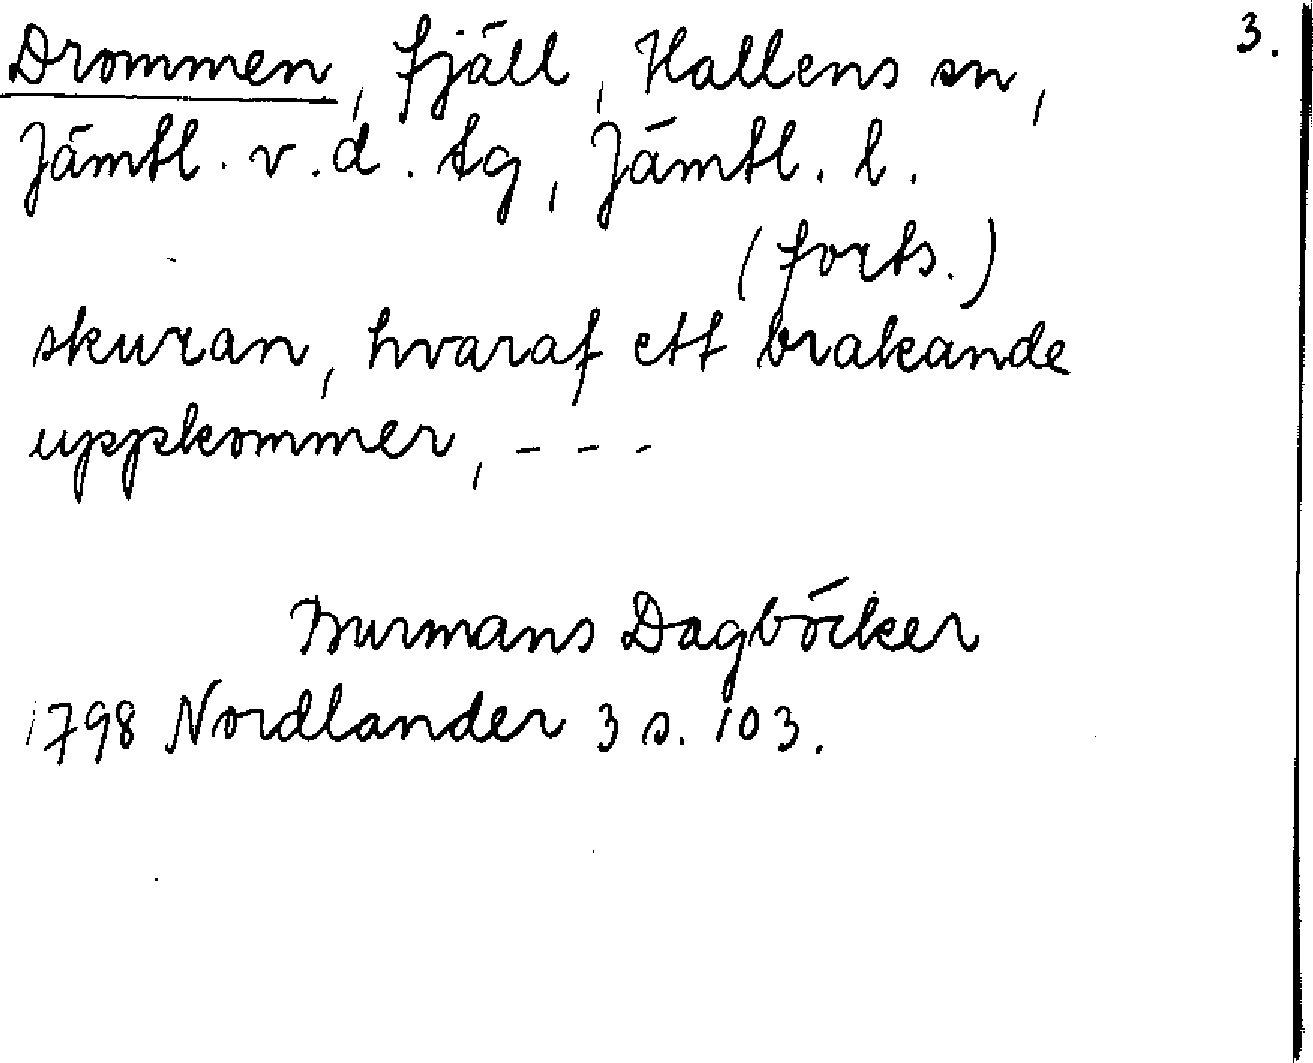 3.
Drommen, fjäll, Hallens sn,
Jämtl. v. d. tg, Jämtl. l.
(forts.)
skuran, hvaraf ett brakande
uppkommer, - - -
Burmans Dagböcker
1798 Nordlander 3 s. 103.